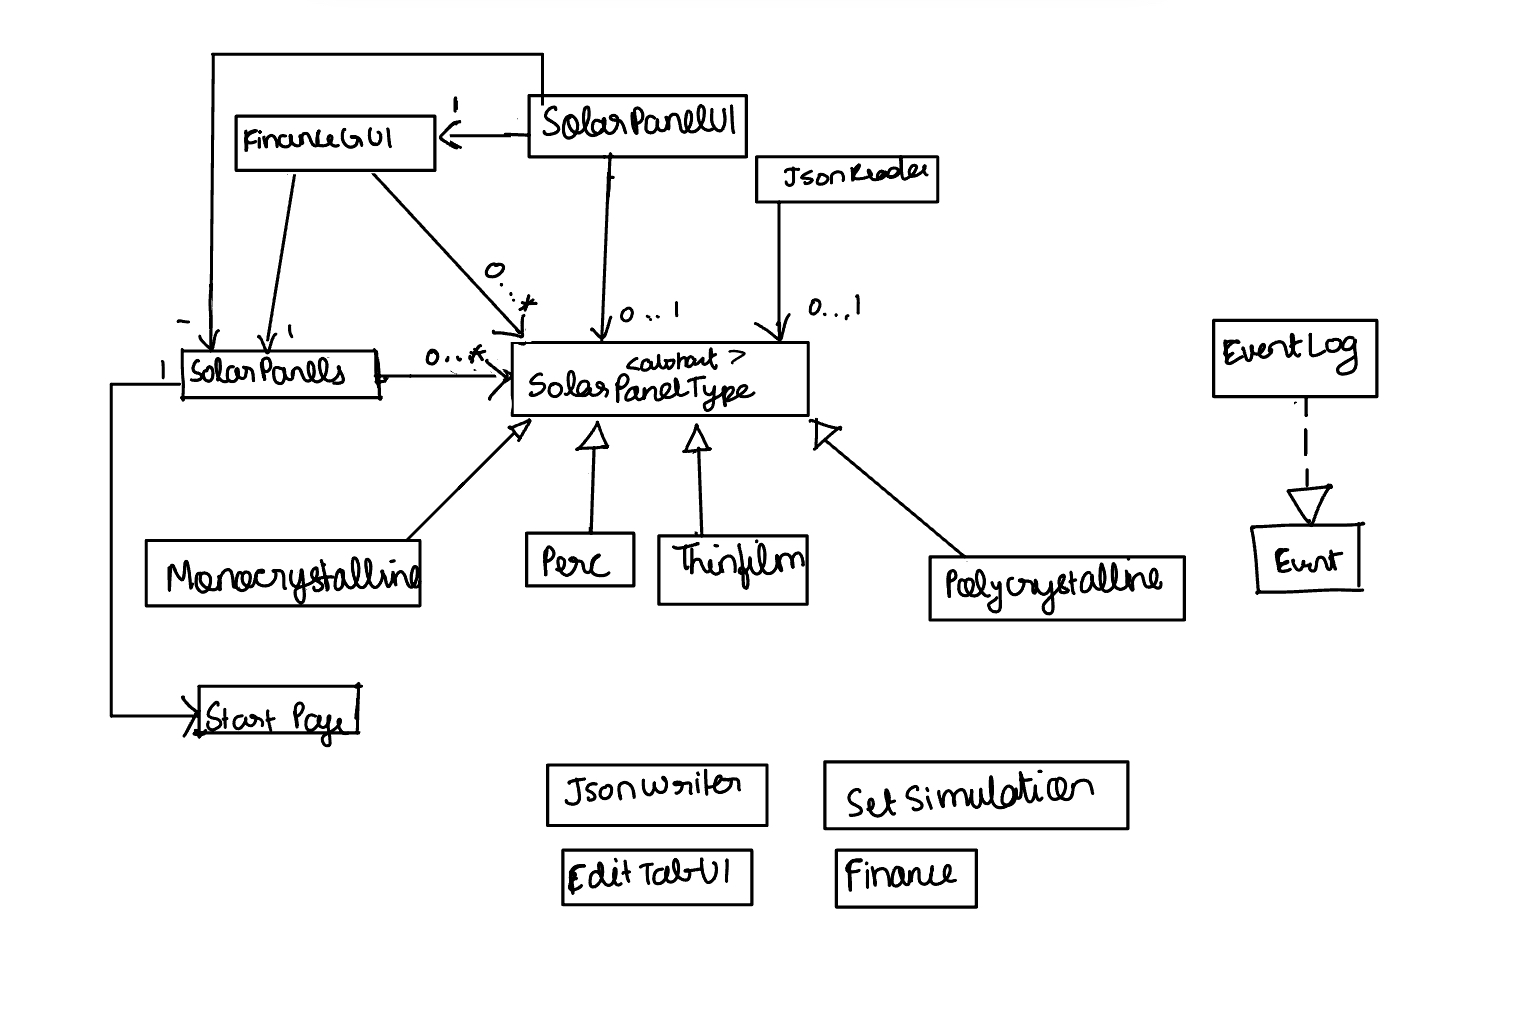 1
SolarPanelUI
FinanceGUI
JsonReader
0...*
0...1
0...1
1
1
0...*
SolarPanels
<abstract>
SolarPanelType
EventLog
Monocrystalline
Perc
Thinfilm
Polycrystalline
Event
Start Page
JsonWriter
SetSimulation
EditTabUI
Finance